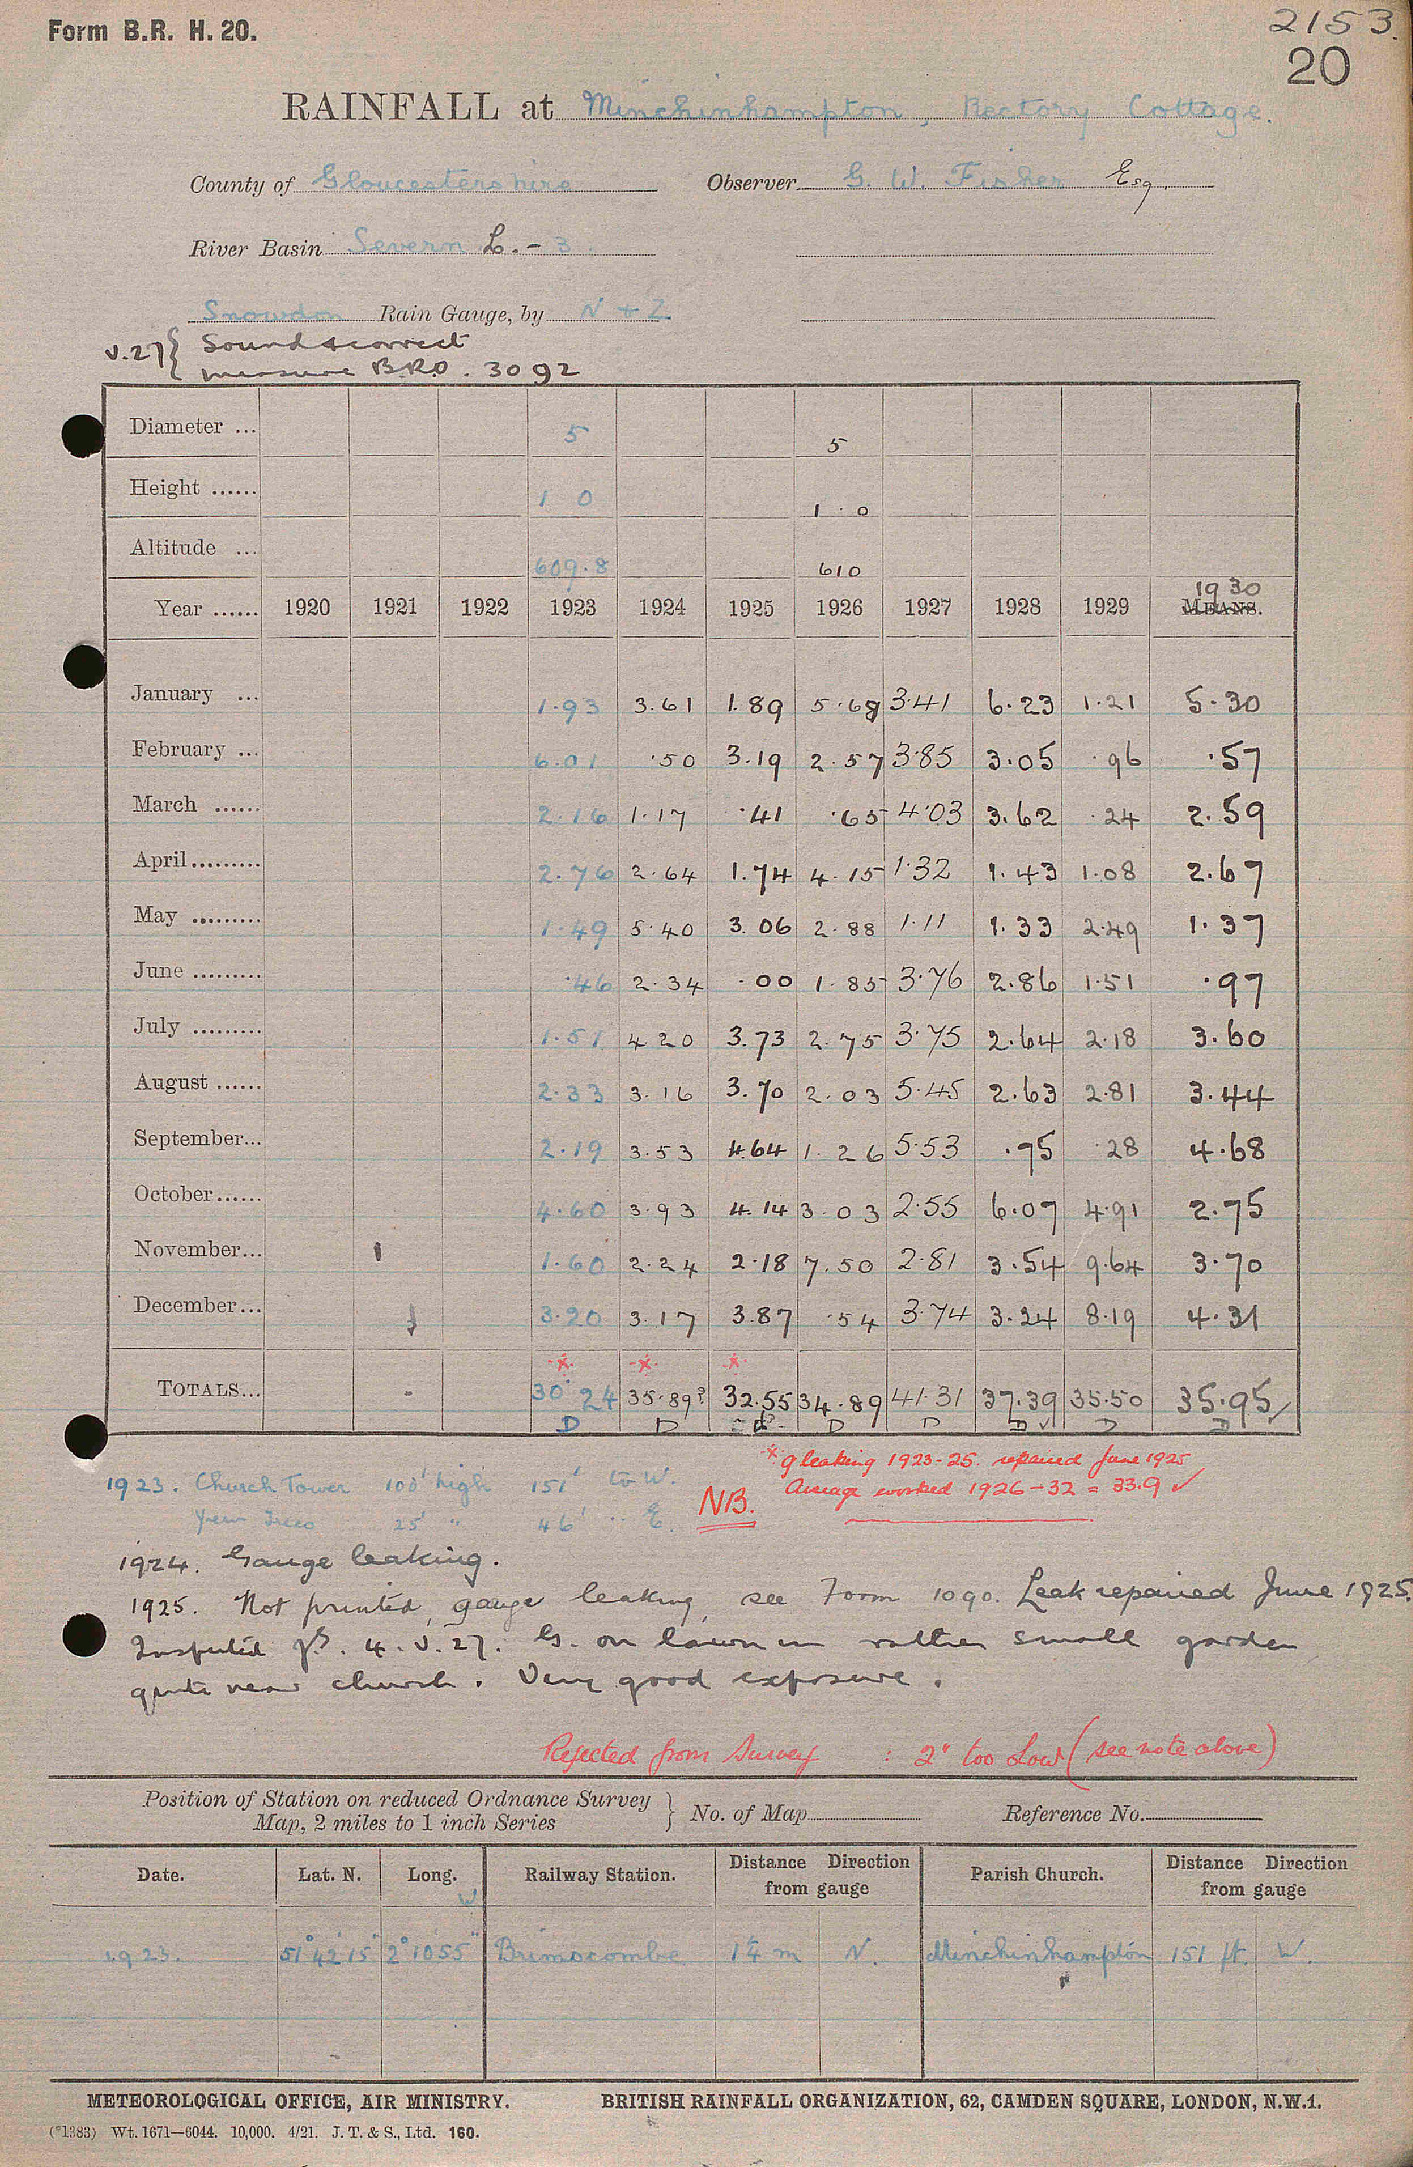 Form B.R. H. 20.
2153.
20
RAINFALL at Minchinhampton, Rectory Cottage.
County of Gloucestershire Observer G. W. Fisher Esq.
River Basin Severn L. - 3.
Snowdon Rain Gauge, by N + Z.
V.27 { Sound & correct
measure B.R.O. 3092
Diameter ... 5 5
Height ...... 1 0 1 . 0
Altitude ... 609.8 610
1930
Year ...... 1920 1921 1922 1923 1924 1925 1926 1927 1928 1929 MEANS.
January ... 1.93 3.61 1.89 5.68 3.41 6.23 1.21 5.30
February ... 6.01 .50 3.19 2.57 3.85 3.05 .96 .57
March ...... 2.16 1.17 .41 .65 4.03 3.62 .24 2.59
April......... 2.76 2.64 1.74 4.15 1.32 1.43 1.08 2.67
May ......... 1.49 5.40 3.06 2.88 1.11 1.33 2.49 1.37
June ......... .46 2.34 .00 1.85 3.76 2.86 1.51 .97
July ......... 1.51 4 20 3.73 2.75 3.75 2.64 2.18 3.60
August ...... 2.33 3.16 3.70 2.03 5.45 2.63 2.81 3.44
September... 2.19 3.53 4.64 1.26 5.53 .95 .28 4.68
October...... 4.60 3.93 4.14 3.03 2.55 6.07 4.91 2.75
November... 1.60 2.24 2.18 7.50 2.81 3.54 9.64 3.70
December... 3.20 3.17 3.87 .54 3.74 3.24 8.19 4.31
* * *
TOTALS... 30.24 35.89? 32.55 34.89 41.31 37.39 35.50 35.95 ✓
D D D D D ✓ D D
1923. Church Tower 100' high 151' to W.
Yew Trees 25' " 46' " E.
NB.
* g leaking 1923-25. repaired June 1925
Average worked 1926-32 = 33.9 ✓
1924. Gauge leaking.
1925. Not printed, gauge leaking, see Form 1090. Leak repaired June 1925.
Inspected 4.V.27. G. on lawn in rather small garden
quite near church. Very good exposure.
Rejected from Survey : 2" too Low (see note above)
Position of Station on reduced Ordnance Survey
Map, 2 miles to 1 inch Series } No. of Map Reference No.
Date. Lat. N. Long. W Railway Station. Distance Direction from gauge Parish Church. Distance Direction from gauge
1923. 51° 42' 15" 2° 10' 55" Brimscombe 1¼ m N. Minchinhampton 151 ft. W.
METEOROLOGICAL OFFICE, AIR MINISTRY. BRITISH RAINFALL ORGANIZATION, 62, CAMDEN SQUARE, LONDON, N.W.1.
(*1383) Wt. 1671—6044. 10,000. 4/21. J. T. & S., Ltd. 160.